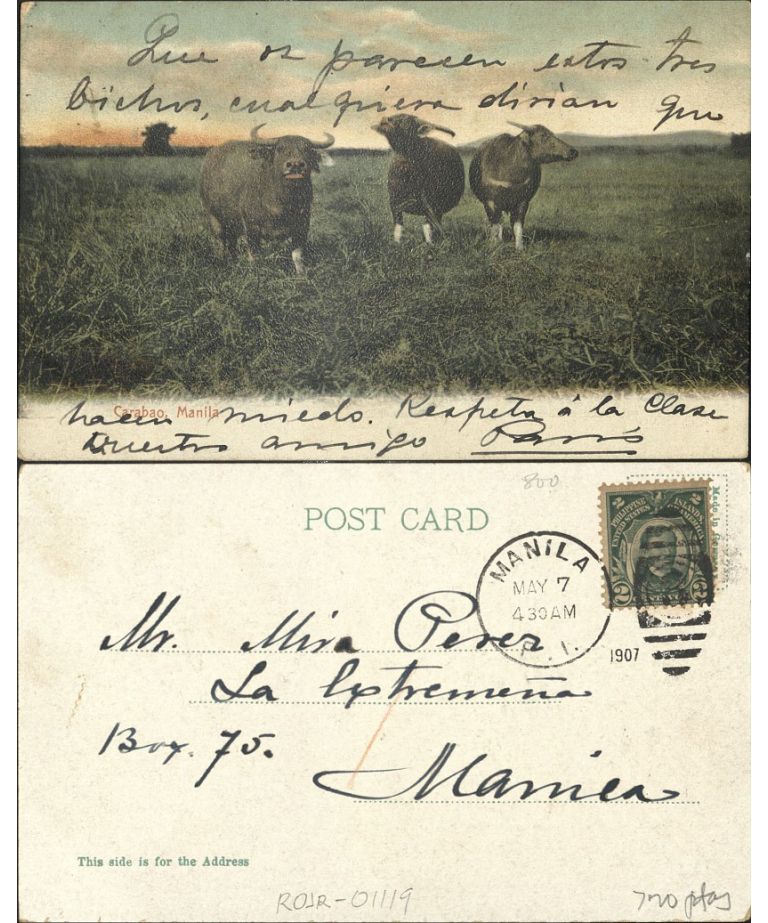 Que os parecen estos tres
bichos, cualquiera dirian que
Carabao, Manila
hacen miedo. Respeta á la Clase
Vuestro amigo París
800
POST CARD
MANILA
MAY 7
430AM
P. I.
1907
2
PHILIPPINE ISLANDS
UNITED STATES OF AMERICA
2
Made in
Mr. Mira Perez
La Extremeña
Box. 75.
Manila
This side is for the Address
ROJR-01119
700 ptas